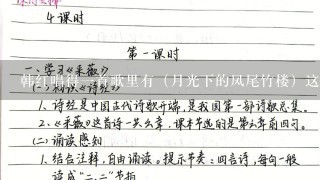 4课时
第一课时
一、学习《采薇》
韩红唱得一首歌里有(月光下的凤尾竹楼)这
(一)初识《诗经》
1.诗经是中国古代诗歌开端,是我国第一部诗歌总集。
2.《采薇》这首诗一共六章,课本节选的是第六章前四句。
(二)诵读感知
1.结合注释,自由诵读。提示节奏:四言诗,每句一般
读成"二、二"节拍